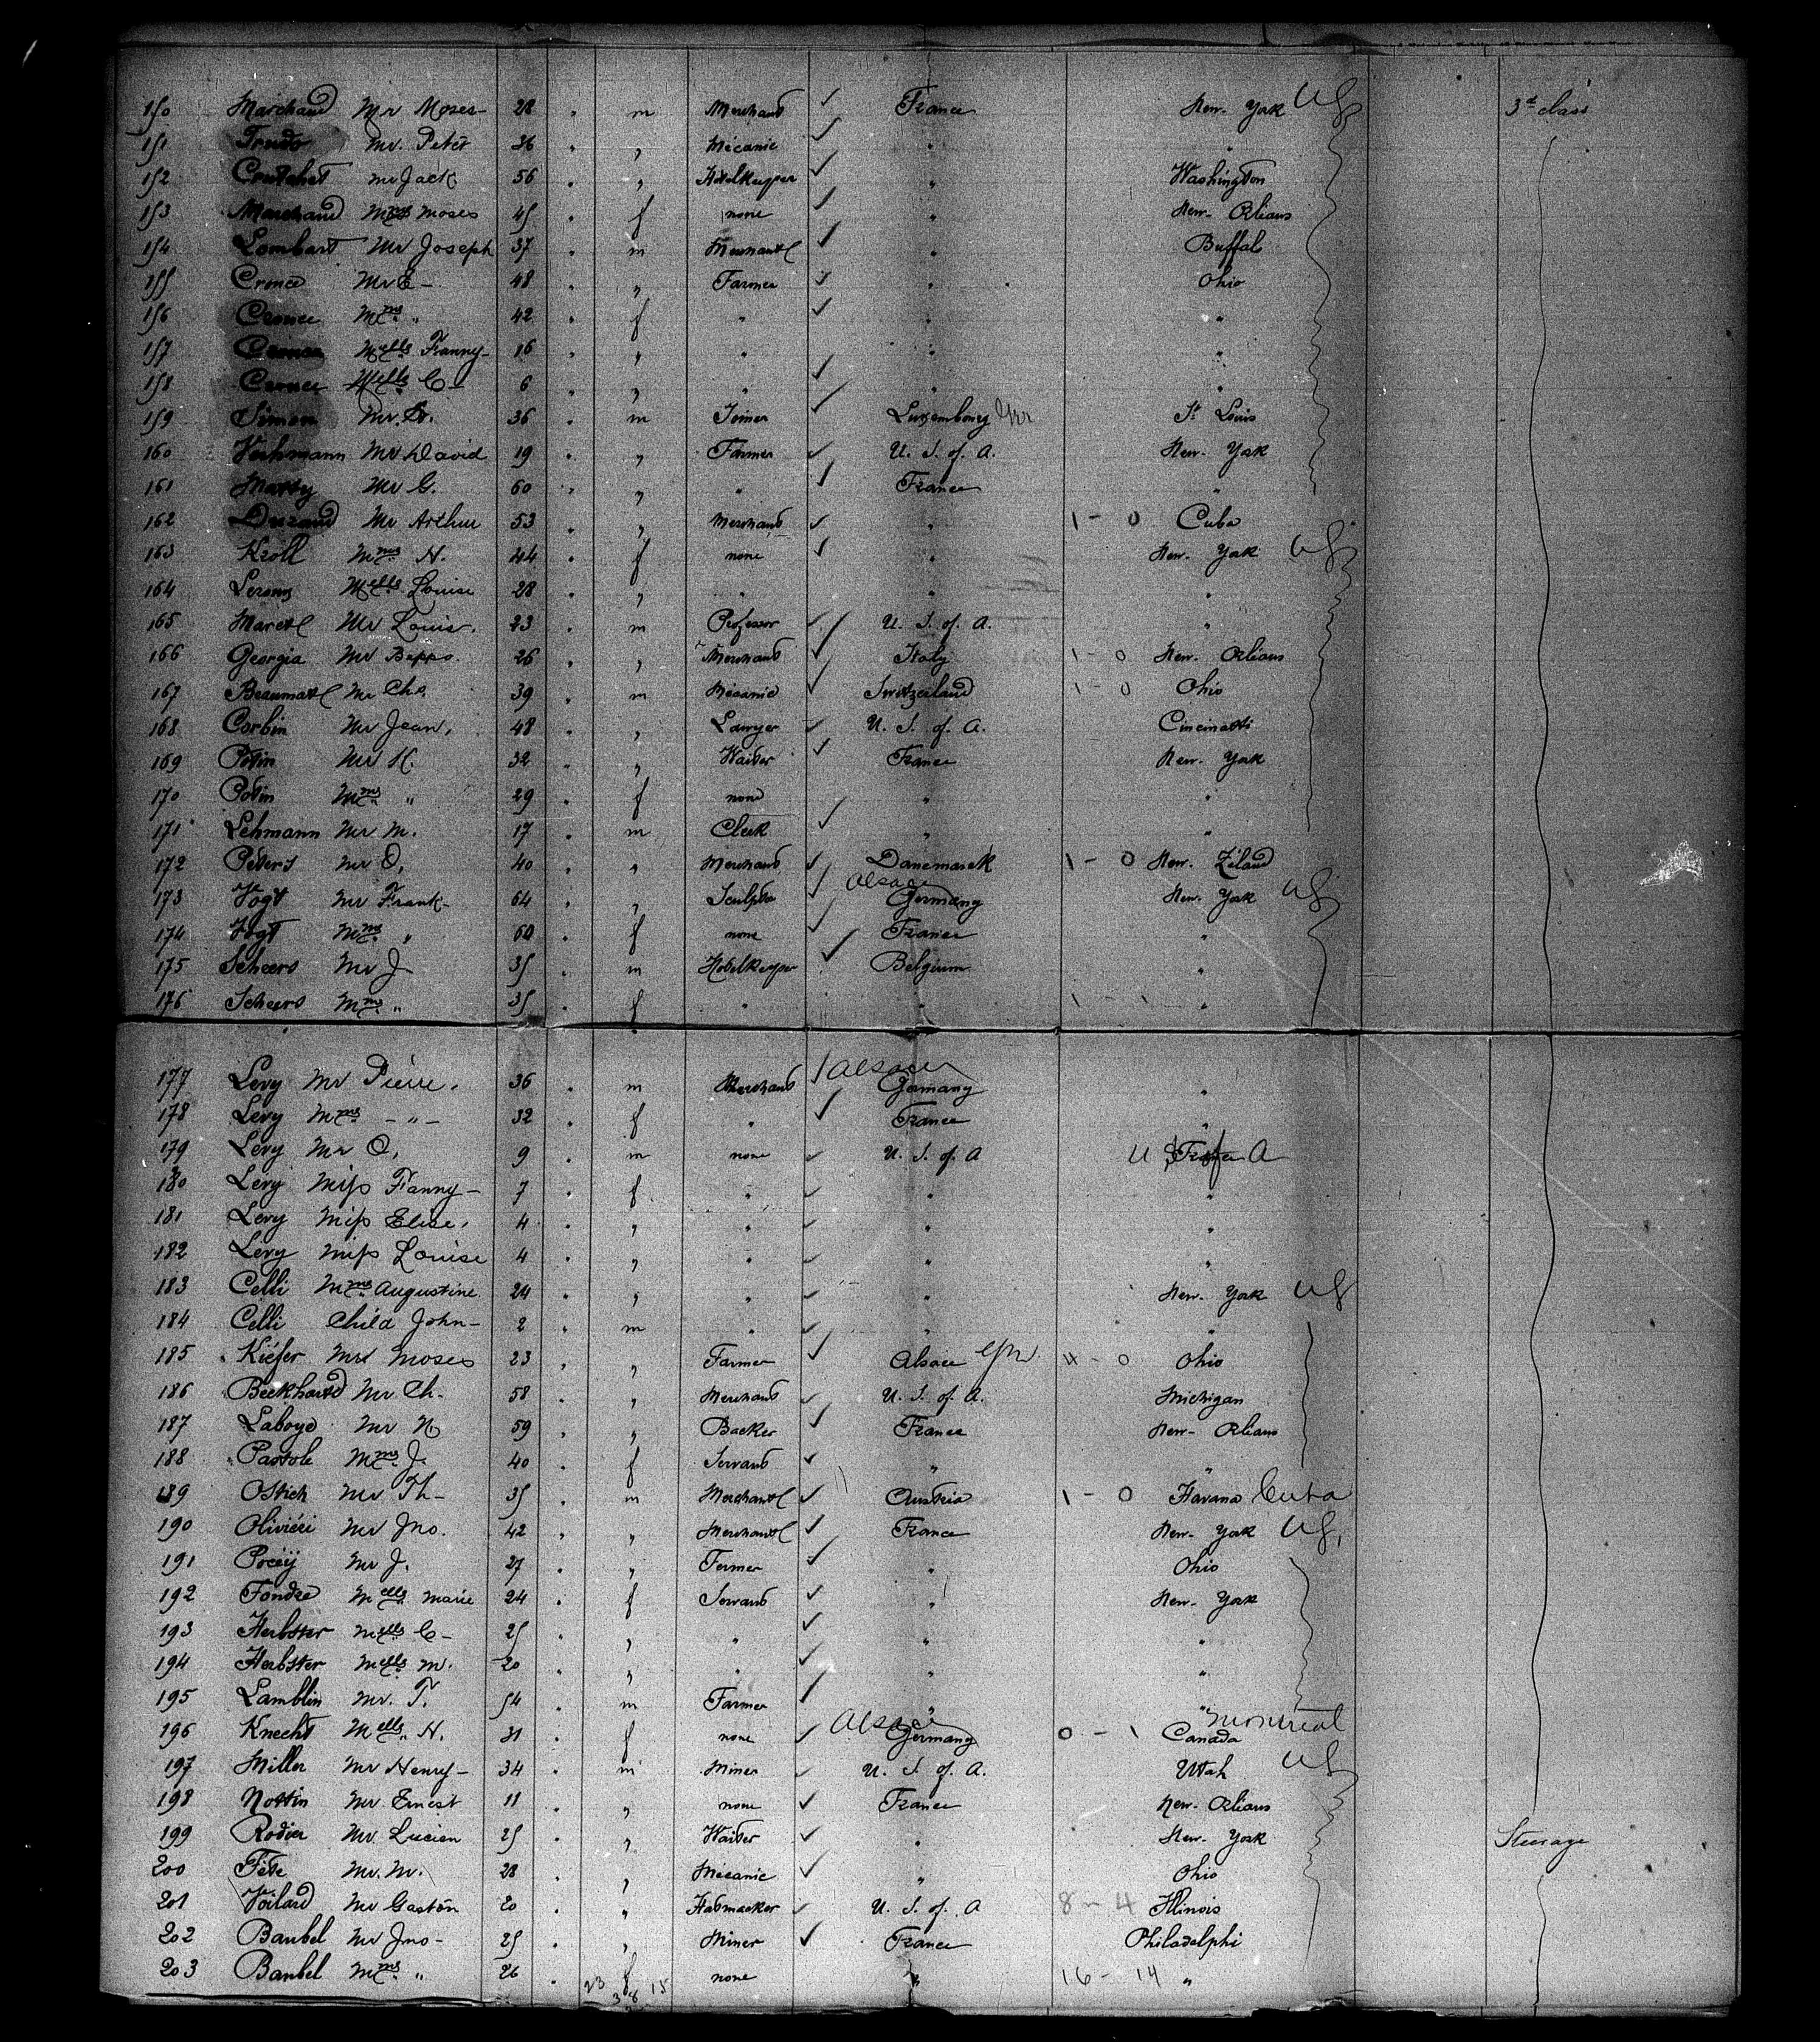 150 Marchand Mr Moses - 28 " m Merchant ✓ France New-York US 3d class
151 Trudo Mr. Peter 36 " " Mécanic ✓ " "
152 Crutchet Mr Jack 56 " " Hotelkeyper ✓ " Washington
153 Marchand Mme Moses 45 " f none ✓ " New-Orléans
154 Lombart Mr Joseph 37 " m Merchant ✓ " Buffalo
155 Cronce Mr E - 48 " " Farmer ✓ " Ohio
156 Cronce Mme " 42 " f " ✓ " "
157 Cronce Melle Fanny - 16 " " " " "
158 Cronce Melle C - 6 " " " ✓ " "
159 Simon Mr. 36 " m Joiner ✓ Luxembourg St Louis
160 Mr David 19 " " Farmer ✓ U. S. of. A. New-York
161 Marty Mr G. 60 " " " ✓ France "
162 Durand Mr Arthur 53 " " Merchant ✓ " 1 - 0 Cuba
163 Kroll Mme H. 44 " f none ✓ " New-York US
164 Melle Louise 28 " " " " "
165 Mr Louis. 23 " m Professor ✓ U. S. of. A. "
166 Georgia Mr Beppo. 26 " " Merchant ✓ Italy 1 - 0 New-Orléans
167 Mr Chs. 39 " m Mécanic ✓ Switzerland 1 - 0 Ohio
168 Corbin Mr Jean, 48 " " Lawyer ✓ U. S. of. A. Cincinatti
169 Potin Mr H. 32 " " Waiter ✓ France New-York
170 Potin Mme " 29 " f none " "
171 Lehmann Mr M. 17 " m Clerk ✓ " "
172 Peters Mr O, 40 " " Merchant ✓ Danemarck 1 - 0 New. Zéland
173 Vogt Mr Frank - 64 " " Sculptor ✓ Alsace Germany New-York US
174 Vogt Mme " 60 " f none ✓ France "
175 Scheers Mr J 35 " m Hotelkeyper ✓ Belgium "
176 Scheers Mme " 35 " f " " "
177 Levy Mr Pierre, 36 " m Merchant ✓ Alsace Germany "
178 Levy Mme - " - 32 " f " ✓ France "
179 Levy Mr O, 9 " m none ✓ U. S. of. A U S of A
180 Levy Miss Fanny - 7 " f " ✓ " "
181 Levy Miss Elise, 4 " " " ✓ " "
182 Levy Miss Louise 4 " " " ✓ " "
183 Celli Mme Augustine 24 " " " ✓ " New-York US
184 Celli Child John - 2 " m " ✓ " "
185 Kiéfer Mr Moses 23 " " Farmer ✓ Alsace 4 - 0 Ohio
186 Beckhard Mr Ch. 58 " " Merchant ✓ U. S. of. A. Michigan
187 Laboye Mr N 59 " " Backer ✓ France New-Orléans
188 Mme J. 40 " f Servant ✓ " "
189 Ostich Mr Th - 35 " m Merchant ✓ Austria 1 - 0 Havana Cuba
190 Oliviéri Mr Jno. 42 " " Merchant ✓ France New-York US,
191 Mr J. 27 " " Fermer ✓ " Ohio
192 Melle Marie 24 " f Servant ✓ " New-York
193 Herbster Melle C - 25 " " " ✓ " "
194 Herbster Melle M. 20 " " " ✓ " "
195 Lamblin Mr. T. 54 " m Farmer ✓ " "
196 Knecht Melle. H. 31 " f none Alsace Germany 0 - 1 Montreal Canada
197 Miller Mr Henry - 34 " m Miner ✓ U. S. of. A. Utah US
198 Nottin Mr. Ernest 11 " " none ✓ France New-Orléans
199 Rodier Mr. Lucien 25 " " Waiter ✓ " New-York Steerage
200 Fête Mr. M. 28 " " Mécanic ✓ " Ohio
201 Voilard Mr Gaston 20 " " Hatmacker ✓ U. S. of. A 8 - 4 Illinois
202 Baubel Mr Jno - 25 " " Miner ✓ France Philadelphi
203 Baubel Mme " 26 " f none " 16 - 14 "
23 38 15